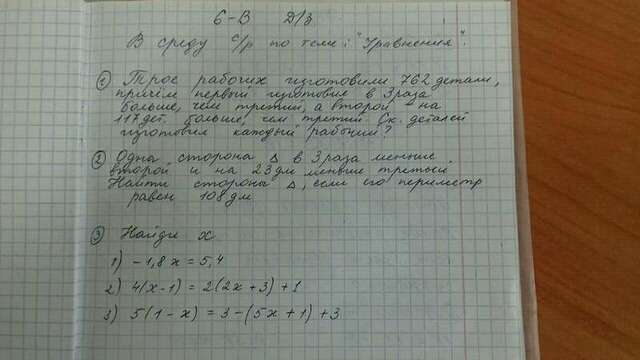 6-В Д/З
В среду с/р по теме: "Уравнения".
① Трое рабочих изготовили 762 детали,
причём первый изготовил в 3 раза
больше, чем третий, а второй - на
117 дет. больше, чем третий. Ск. деталей
изготовил каждый рабочий?
② Одна сторона Δ в 3 раза меньше
второй и на 23 дм меньше третьей.
Найти стороны Δ, если его периметр
равен 108 дм
③ Найди x
1) -1,8x = 5,4
2) 4(x-1) = 2(2x+3)+1
3) 5(1-x) = 3-(5x+1)+3